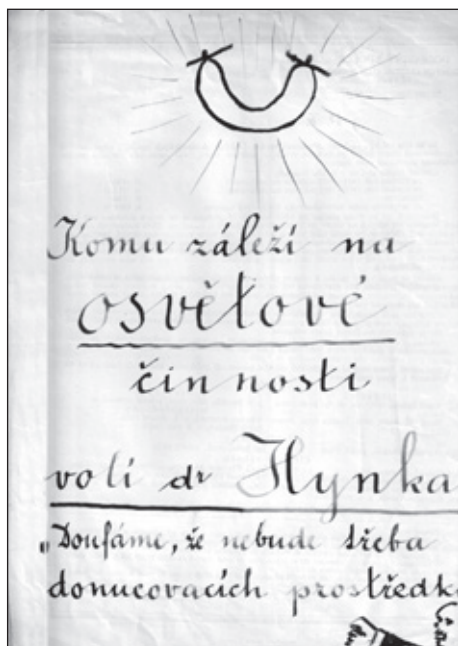 Komu záleží na
osvětové
činnosti
volí dr Hynka
„Doufáme, že nebude třeba
donucovacích prostředk